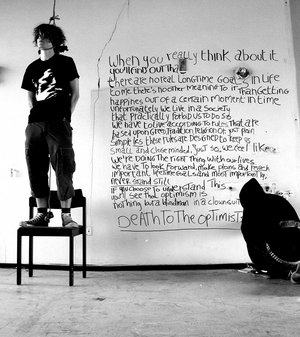 When you really think about it
you'll find out that
there are no real longtime goals in life
to me there's no other meaning to it than getting
happiness out of a certain moment in time
unfortunately we live in a society
that practically forbids us to do so
we have to live according to rules that are
based upon greed tradition religion or just plain
simpleness these rules are designed to keep us
small and close minded, just so we feel like
we're doing the right thing with our lives
we have to look forward, make plans and reach
important lifetime goals and most important is,
never stand still
if you choose to understand this
you'll see that optimism is
nothing but a blindman in a clownsuit
DEATH TO THE OPTIMIST